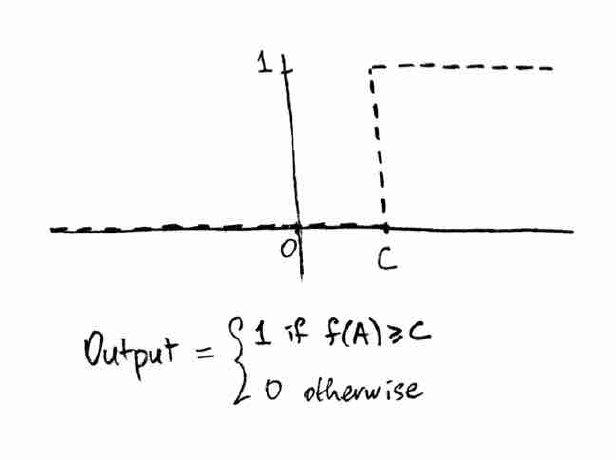 1
0
C
Output = { 1 if f(A) ≥ C
0 otherwise